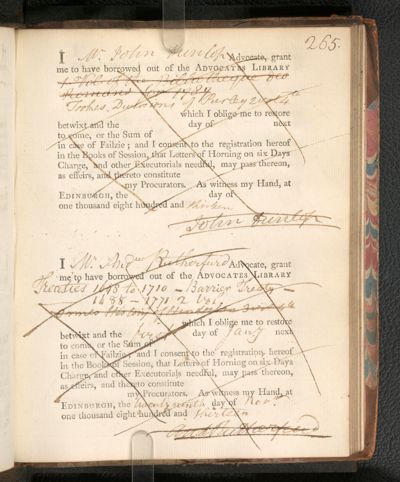 265.
I Mr. John Dunlop Advocate, grant
me to have borrowed out of the ADVOCATES LIBRARY
1784
Tookes, Diversions of Purley
which I oblige me to restore
betwixt and the day of next
to come, or the Sum of
in case of Failzie; and I consent to the registration hereof
in the Books of Session, that Letters of Horning on six Days
Charge, and other Executorials needful, may pass thereon,
as effeirs, and thereto constitute
my Procurators. As witness my Hand, at
EDINBURGH, the day of
one thousand eight hundred and thirteen
John Dunlop
I Mr. And Rutherfurd Advocate, grant
me to have borrowed out of the ADVOCATES LIBRARY
Treaties to 1710 - Barrier Treaty -
1771 2 Vol.
which I oblige me to restore
betwixt and the first day of Jany next
to come, or the Sum of
in case of Failzie; and I consent to the registration hereof
in the Books of Session, that Letters of Horning on six Days
Charge, and other Executorials needful, may pass thereon,
as effeirs, and thereto constitute
my Procurators. As witness my Hand, at
EDINBURGH, the day of Novr.
one thousand eight hundred and thirteen
And Rutherfurd